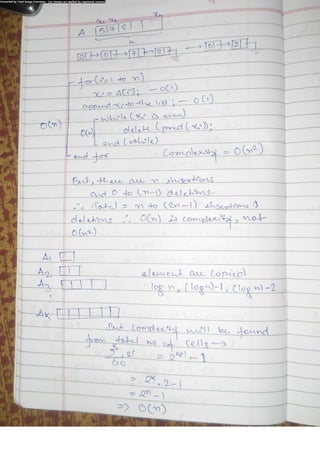 Converted by Total Image Converter - (no stamps are applied by registered version)
x₁ x₂ xₙ
A [5|7|2| | ]
n
[0]→[5]→[7]→[2] → [0]→[2]
for (i=1 to n)
xi = A[i]; — O(1)
append xi to the list; — O(1)
O(n)
while (xi is even)
O(n) delete (pred(xi));
end (while)
end for Complexity = O(n²)
But, there are n insertions
and 0 to (n-1) deletions.
∴ Total = n to (2n-1) insertions &
deletions ∴ O(n) is complexity, not
O(n²)
A₁
A₂ element are copied
A₃ log n, (log n)-1, (log n)-2
Ak
But complexity will be found
from total no of cells →
Σ 2ⁱ = 2ᵏ⁺¹ - 1
i=0
= 2ᵏ.2-1
= 2n-1
=> O(n)